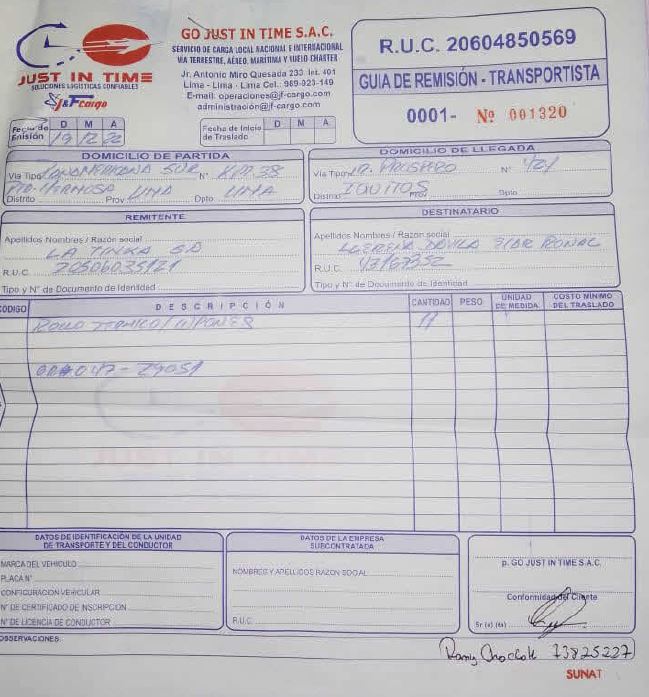 JUST IN TIME
SOLUCIONES LOGÍSTICAS CONFIABLES
J&Fcargo
GO JUST IN TIME S.A.C.
SERVICIO DE CARGA LOCAL NACIONAL E INTERNACIONAL
VÍA TERRESTRE, AÉREO, MARÍTIMA Y VUELO CHARTER
Jr. Antonio Miro Quesada 233 Int. 401
Lima - Lima - Lima Cel.: 969-323-149
E-mail: operaciones@jf-cargo.com
administración@jf-cargo.com
R.U.C. 20604850569
GUIA DE REMISIÓN - TRANSPORTISTA
0001- Nº 001320
Fecha de Emisión D M A
19 12 22
Fecha de Inicio de Traslado D M A
DOMICILIO DE PARTIDA
Vía Tipo PANAMERICANA SUR Nº KM 38
PTA HERMOSA LIMA LIMA
Distrito Prov Dpto
DOMICILIO DE LLEGADA
Vía Tipo PROSPERO Nº 421
IQUITOS
Distrito Prov. Dpto
REMITENTE
Apellidos Nombres / Razón social
LA TINKA SA
R.U.C. 20506035121
Tipo y Nº de Documento de Identidad
DESTINATARIO
Apellidos Nombres / Razón social
LLERENA DAVILA
R.U.C.
Tipo y Nº de Documento de Identidad
CODIGO DESCRIPCIÓN CANTIDAD PESO UNIDAD DE MEDIDA COSTO MÍNIMO DEL TRASLADO
ROLLO TERMICO/ 11
047-29051
JUST IN TIME
DATOS DE IDENTIFICACIÓN DE LA UNIDAD
DE TRANSPORTE Y DEL CONDUCTOR
MARCA DEL VEHICULO
PLACA Nº
CONFIGURACION VEHICULAR
Nº DE CERTIFICADO DE INSCRIPCIÓN
Nº DE LICENCIA DE CONDUCTOR
DATOS DE LA EMPRESA
SUBCONTRATADA
NOMBRES Y APELLIDOS RAZON SOCIAL
R.U.C.
p. GO JUST IN TIME S.A.C.
Conformidad del Cliente
Sr (a) (ita)
OBSERVACIONES
73825227
SUNAT